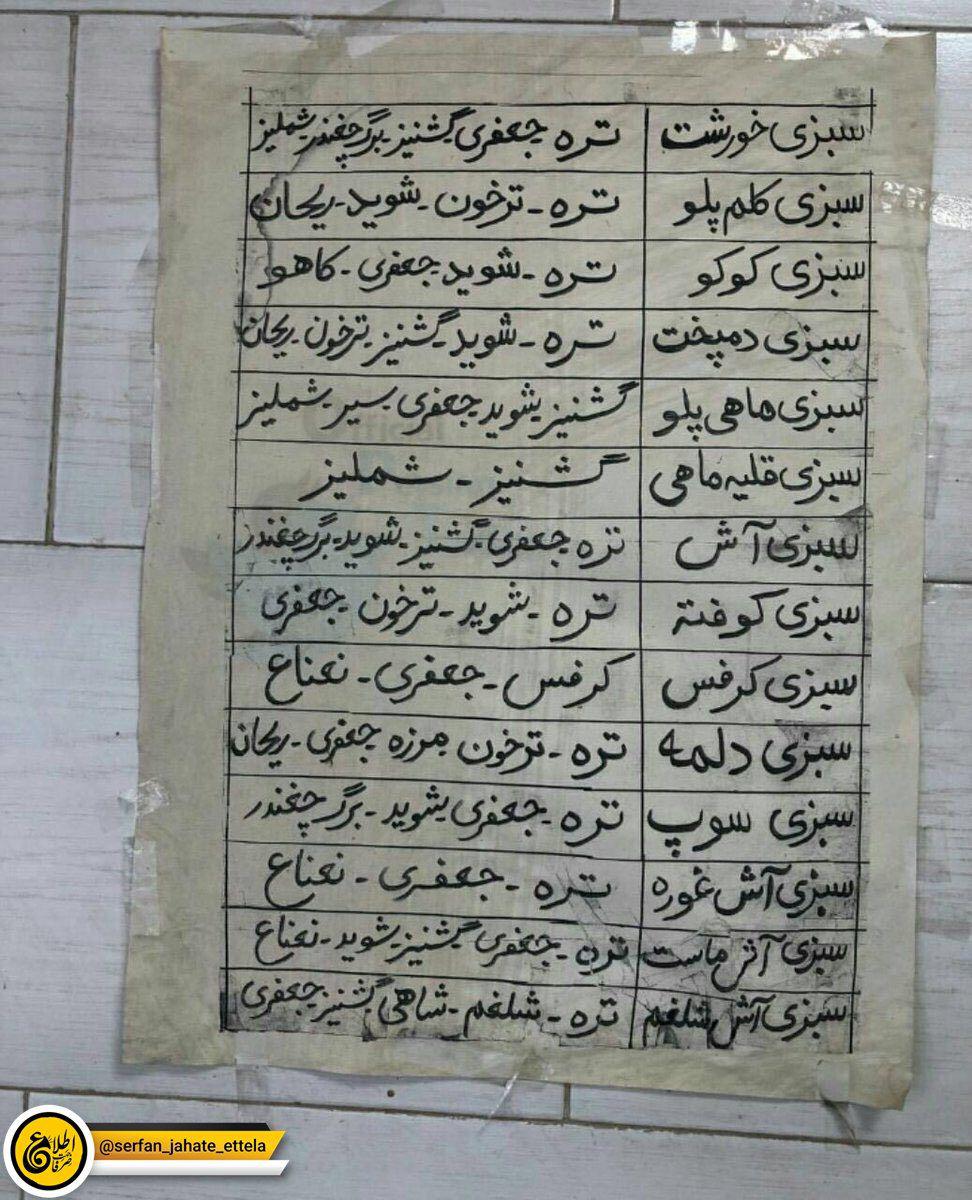 سبزی خورشت تره جعفری گشنیز برگ چغندر شملیز
سبزی کلم پلو تره - ترخون - شوید - ریحان
سبزی کوکو تره - شوید جعفری - کاهو
سبزی دمپخت تره - شوید گشنیز - ترخون ریحان
سبزی ماهی پلو گشنیز شوید جعفری سیر شملیز
سبزی قلیه ماهی گشنیز - شملیز
سبزی آش تره جعفری - گشنیز - شوید - برگ چغندر
سبزی کوفته تره - شوید - ترخون جعفری
سبزی کرفس کرفس - جعفری - نعناع
سبزی دلمه تره - ترخون مرزه جعفری - ریحان
سبزی سوپ تره - جعفری شوید - برگ چغندر
سبزی آش غوره تره - جعفری - نعناع
سبزی آش ماست تره - جعفری گشنیز شوید - نعناع
سبزی آش شلغم تره - شلغم - شاهی گشنیز جعفری
اطلاع
صرفا جهت
@serfan_jahate_ettela